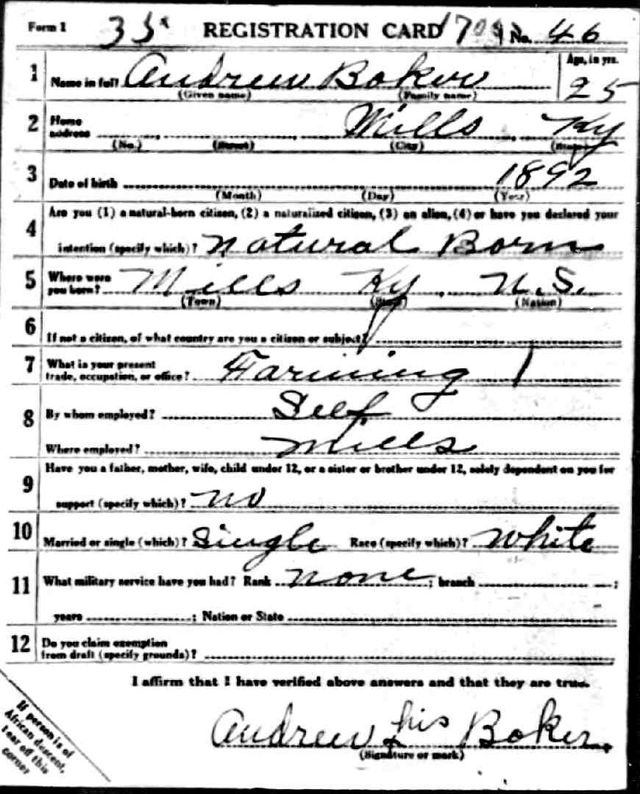 Form 1 35 REGISTRATION CARD No. 46
1 Name in full Andrew Boker Age, in yrs. 25
(Given name) (Family name)
2 Home address Mills, Ky
(No.) (Street) (City) (State)
3 Date of birth 1892
(Month) (Day) (Year)
4 Are you (1) a natural-born citizen, (2) a naturalized citizen, (3) an alien, (4) or have you declared your
intention (specify which)? natural Born
5 Where were you born? Mills Ky, U.S.
(Town) (State) (Nation)
6 If not a citizen, of what country are you a citizen or subject?
7 What is your present trade, occupation, or office? Farming
8 By whom employed? Self
Where employed? Mills
9 Have you a father, mother, wife, child under 12, or a sister or brother under 12, solely dependent on you for
support (specify which)? no
10 Married or single (which)? Single Race (specify which)? White
11 What military service have you had? Rank none; branch ;
years ; Nation or State
12 Do you claim exemption from draft (specify grounds)?
I affirm that I have verified above answers and that they are true.
Andrew his Boker.
(Signature or mark)
If person is of
African descent,
tear off this
corner